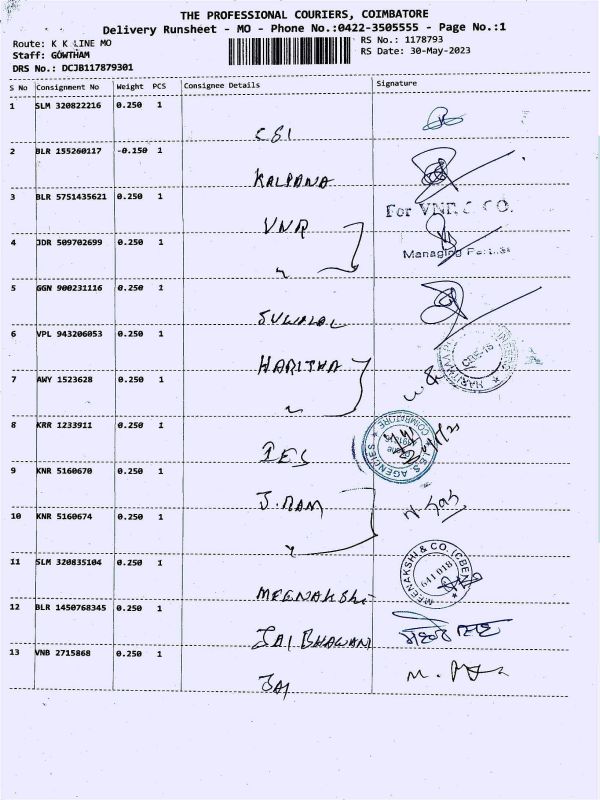 THE PROFESSIONAL COURIERS, COIMBATORE
Delivery Runsheet - MO - Phone No.:0422-3505555 - Page No.:1
Route: K K LINE MO
RS No.: 1178793
Staff: GOWTHAM
RS Date: 30-May-2023
DRS No.: DCJB117879301
S No Consignment No Weight PCS Consignee Details Signature
1 SLM 320822216 0.250 1
CSI
2 BLR 155260117 -0.150 1
KALPANA
3 BLR 5751435621 0.250 1
For VNR & CO.
VNR
4 JDR 509702699 0.250 1
Managing
5 GGN 900231116 0.250 1
SUWALAL
6 VPL 943206053 0.250 1
HARITHA
7 AWY 1523628 0.250 1
8 KRR 1233911 0.250 1
J.S. AGENCIES
COIMBATORE
9 KNR 5160670 0.250 1
J. RAM
10 KNR 5160674 0.250 1
11 SLM 320835104 0.250 1
MEENAKSHI & CO. (CBE)
641 018
MEENAKSHI
12 BLR 1450768345 0.250 1
JAI BHAWANI
13 VNB 2715868 0.250 1
JAI